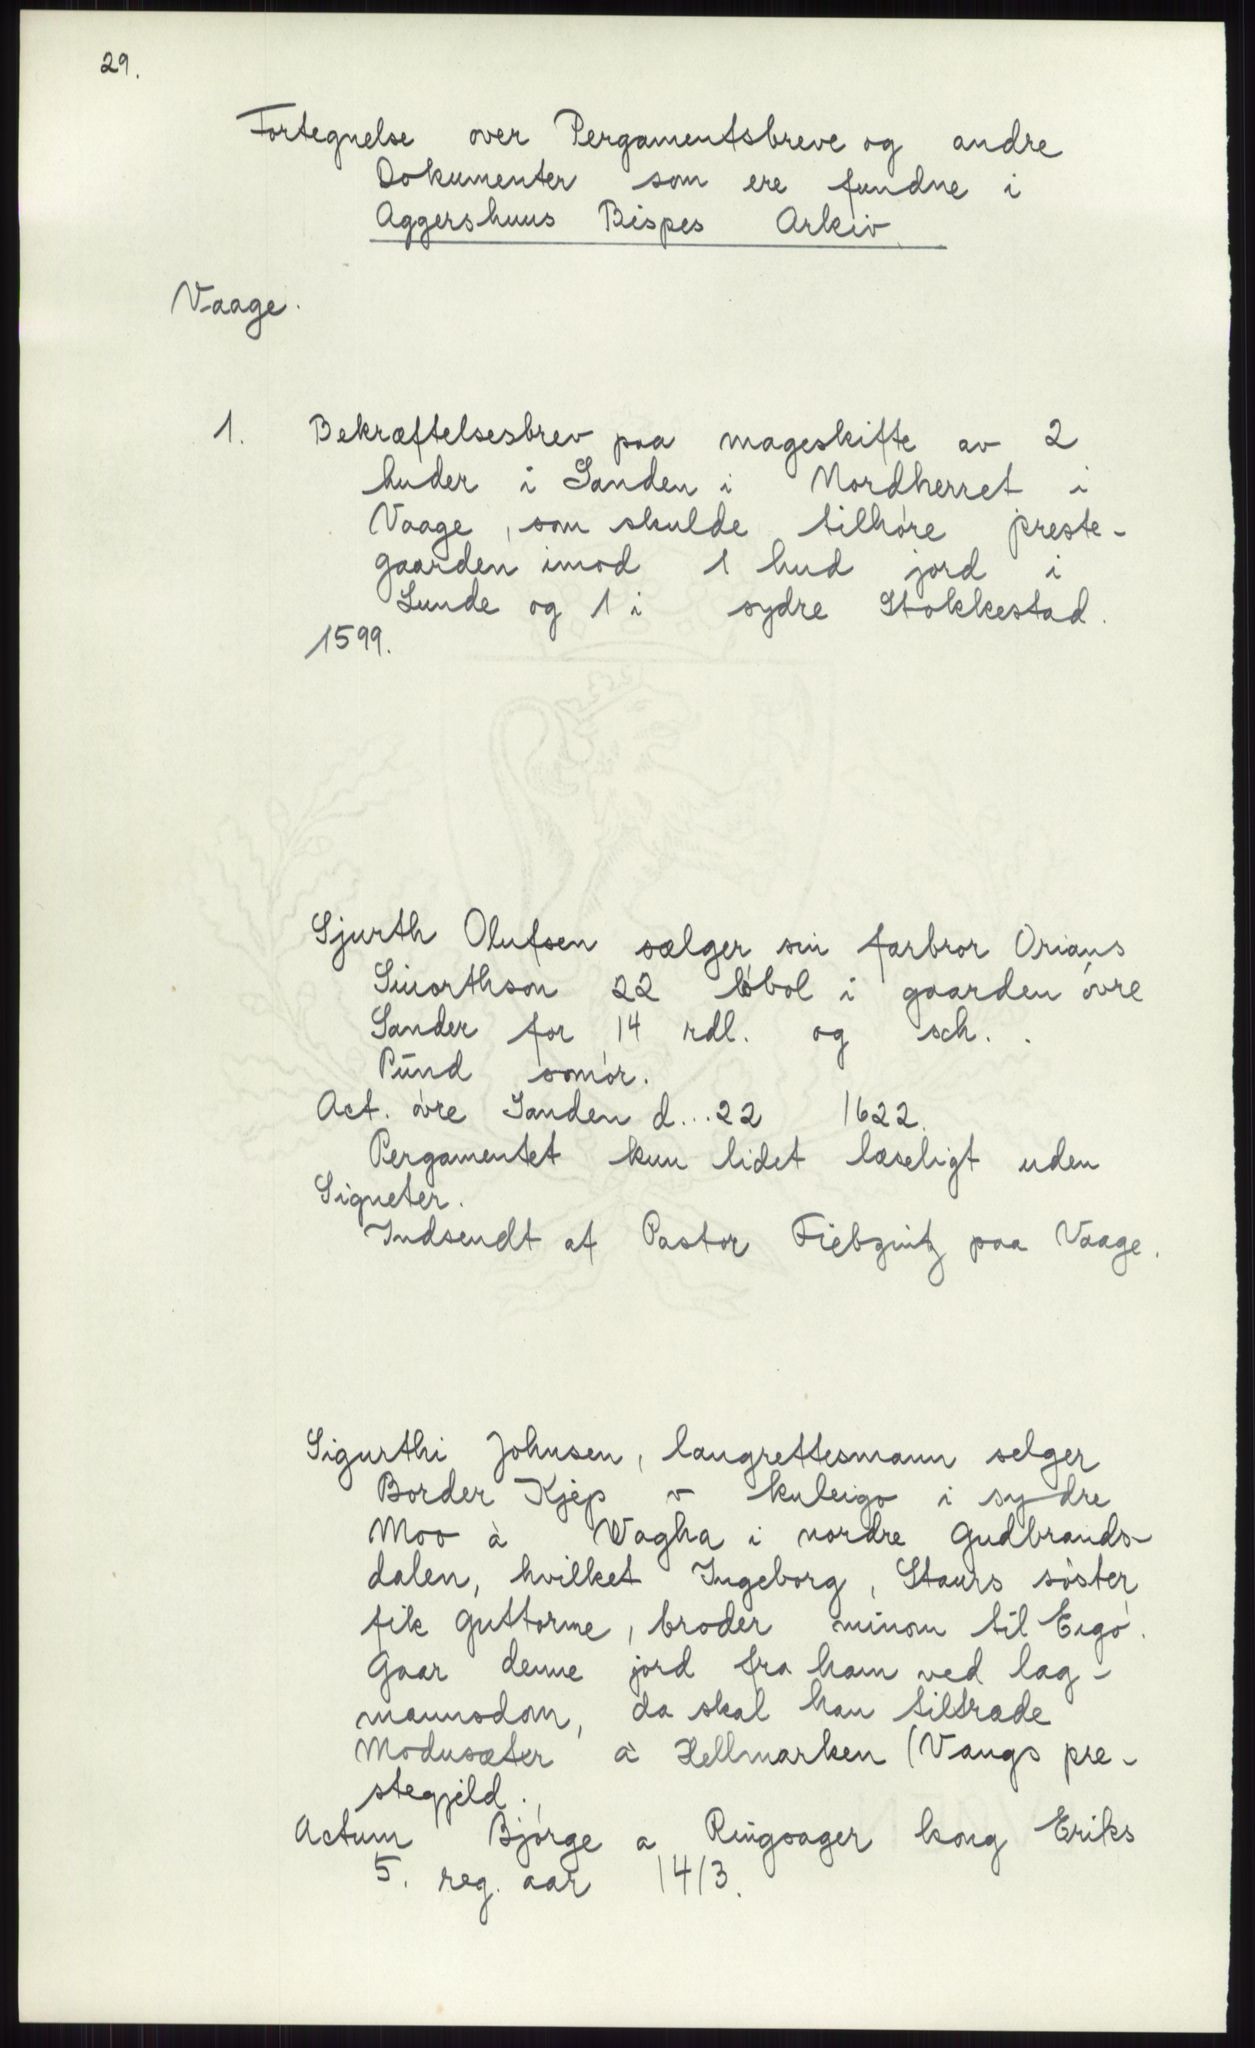 29.
Fortegnelse over Pergamentsbreve og andre
Dokumenter som ere fundne i
Aggershuus Bispes Arkiv.
Vaage.
1. Bekræftelsesbrev paa mageskifte av 2
huder i Sanden i Nordherret i
Vaage, som skulde tilhøre preste-
gaarden imod 1 hud jord i
Lunde og 1 i sydre Stokkestad.
1599.
Sjurth Olufsen sælger sin farbror Orians
Siuorthson 22 løbol i gaarden øvre
Sander for 14 rdl. og sch. .
Pund somør.
Act. øvre Sanden d...22 1622.
Pergamentet kun lidet læseligt uden
Signeter.
Indsendt af Pastor Fiebzintz paa Vaage.
Sigurthi Johnsen, laugrettesmann selger
Border Kjep v kuleigo i sydre
Moo à Wagha i nordre Gudbrands-
dalen, hvilket Ingeborg, Staurs søster,
fik Guttorme, broder minom til Eigo.
Gaar denne jord fra ham ved lag-
mannsdom, da skal han tiltræde
Modusæter à Hellmarken (Vangs pre-
stegjeld.,
Actum Bjørge a Ringsager kong Eriks
5. reg. aar 1413.